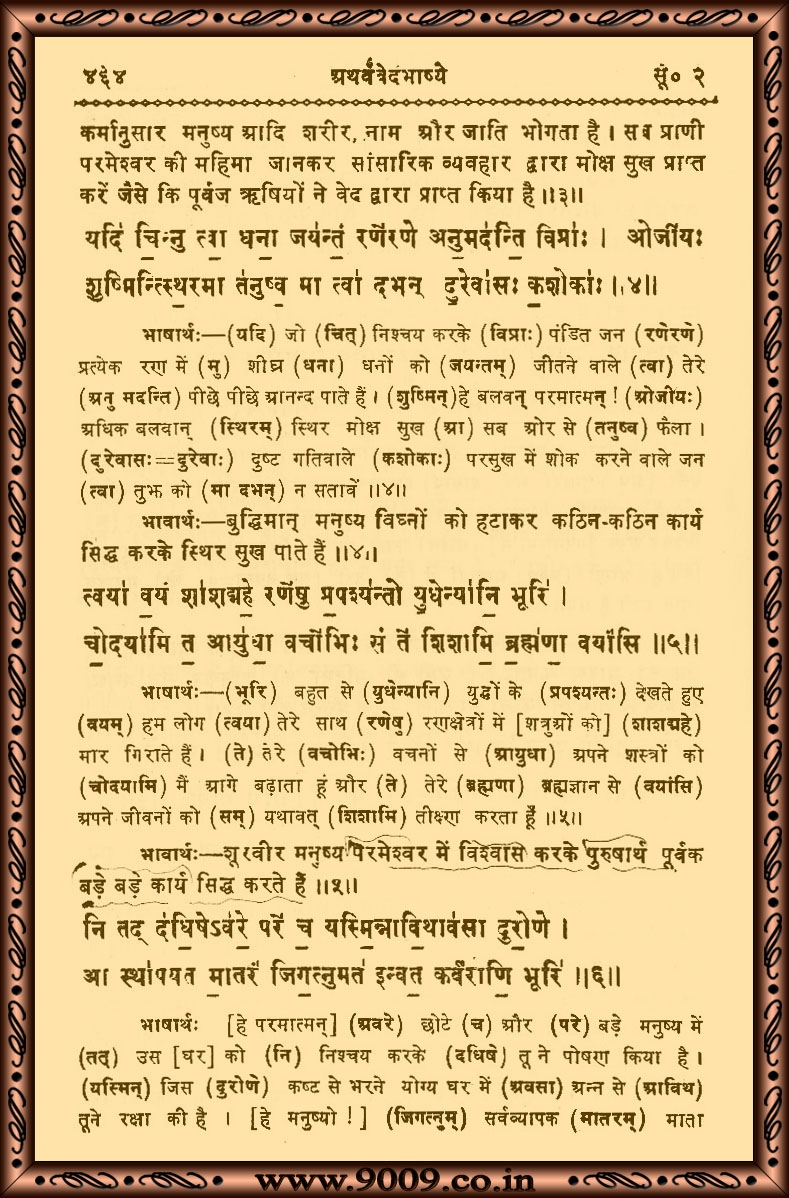 ४६४ अथर्ववेदभाष्ये सू० २
कर्मानुसार मनुष्य आदि शरीर, नाम और जाति भोगता है । सब प्राणी
परमेश्वर की महिमा जानकर सांसारिक व्यवहार द्वारा मोक्ष सुख प्राप्त
करें जैसे कि पूर्वज ऋषियों ने वेद द्वारा प्राप्त किया है ॥३॥
यदि॑ चि॒न्नु त्वा॒ धना॒ जय॑न्तं॒ रणे॑रणे अनु॒मद॑न्ति॒ विप्राः॑ । ओजी॑यः
शु॒ष्मिन्त्स्थि॒रमा त॑नुष्व॒ मा त्वा॑ दभन् दु॒रेवा॑सः क॒शोकाः॑ ॥४॥
भाषार्थः—(यदि) जो (चित्) निश्चय करके (विप्राः) पंडित जन (रणेरणे)
प्रत्येक रण में (मु) शीघ्र (धना) धनों को (जयन्तम्) जीतने वाले (त्वा) तेरे
(अनु मदन्ति) पीछे पीछे आनन्द पाते हैं । (शुष्मिन्) हे बलवन् परमात्मन् ! (ओजीयः)
अधिक बलवान् (स्थिरम्) स्थिर मोक्ष सुख (आ) सब ओर से (तनुष्व) फैला ।
(दुरेवासः=दुरेवाः) दुष्ट गतिवाले (कशोकाः) परसुख में शोक करने वाले जन
(त्वा) तुझ को (मा दभन्) न सतावें ॥४॥
भावार्थः—बुद्धिमान् मनुष्य विघ्नों को हटाकर कठिन-कठिन कार्य
सिद्ध करके स्थिर सुख पाते हैं ॥४॥
त्वया॑ व॒यं शा॑शद्महे॒ रणे॑षु प्र॒पश्य॑न्तो यु॒धेन्या॑नि॒ भूरि॑ ।
चो॒दया॑मि त॒ आयु॑धा॒ वचो॑भिः॒ सं ते॑ शिशामि॒ ब्रह्म॑णा॒ वयां॑सि ॥५॥
भाषार्थः—(भूरि) बहुत से (युधेन्यानि) युद्धों के (प्रपश्यन्तः) देखते हुए
(वयम्) हम लोग (त्वया) तेरे साथ (रणेषु) रणक्षेत्रों में [शत्रुओं को] (शाशद्महे)
मार गिराते हैं । (ते) तेरे (वचोभिः) वचनों से (आयुधा) अपने शस्त्रों को
(चोदयामि) मैं आगे बढ़ाता हूं और (ते) तेरे (ब्रह्मणा) ब्रह्मज्ञान से (वयांसि)
अपने जीवनों को (सम्) यथावत् (शिशामि) तीक्ष्ण करता हूँ ॥५॥
भावार्थः—शूरवीर मनुष्य परमेश्वर में विश्वास करके पुरुषार्थ पूर्वक
बड़े बड़े कार्य सिद्ध करते हैं ॥५॥
नि तद् द॑धि॒षेऽव॑रे॒ परे॑ च॒ यस्मि॒न्नावि॒थाव॑सा दुरो॒णे ।
आ स्था॑पयत मा॒तरं॑ जिग॒त्नुमत॑ इन्वत॒ कर्व॑राणि॒ भूरि॑ ॥६॥
भाषार्थः [हे परमात्मन्] (अवरे) छोटे (च) और (परे) बड़े मनुष्य में
(तद्) उस [घर] को (नि) निश्चय करके (दधिषे) तू ने पोषण किया है ।
(यस्मिन्) जिस (दुरोणे) कष्ट से भरने योग्य घर में (अवसा) अन्न से (आविथ)
तूने रक्षा की है । [हे मनुष्यो !] (जिगत्नुम्) सर्वव्यापक (मातरम्) माता
www.9009.co.in